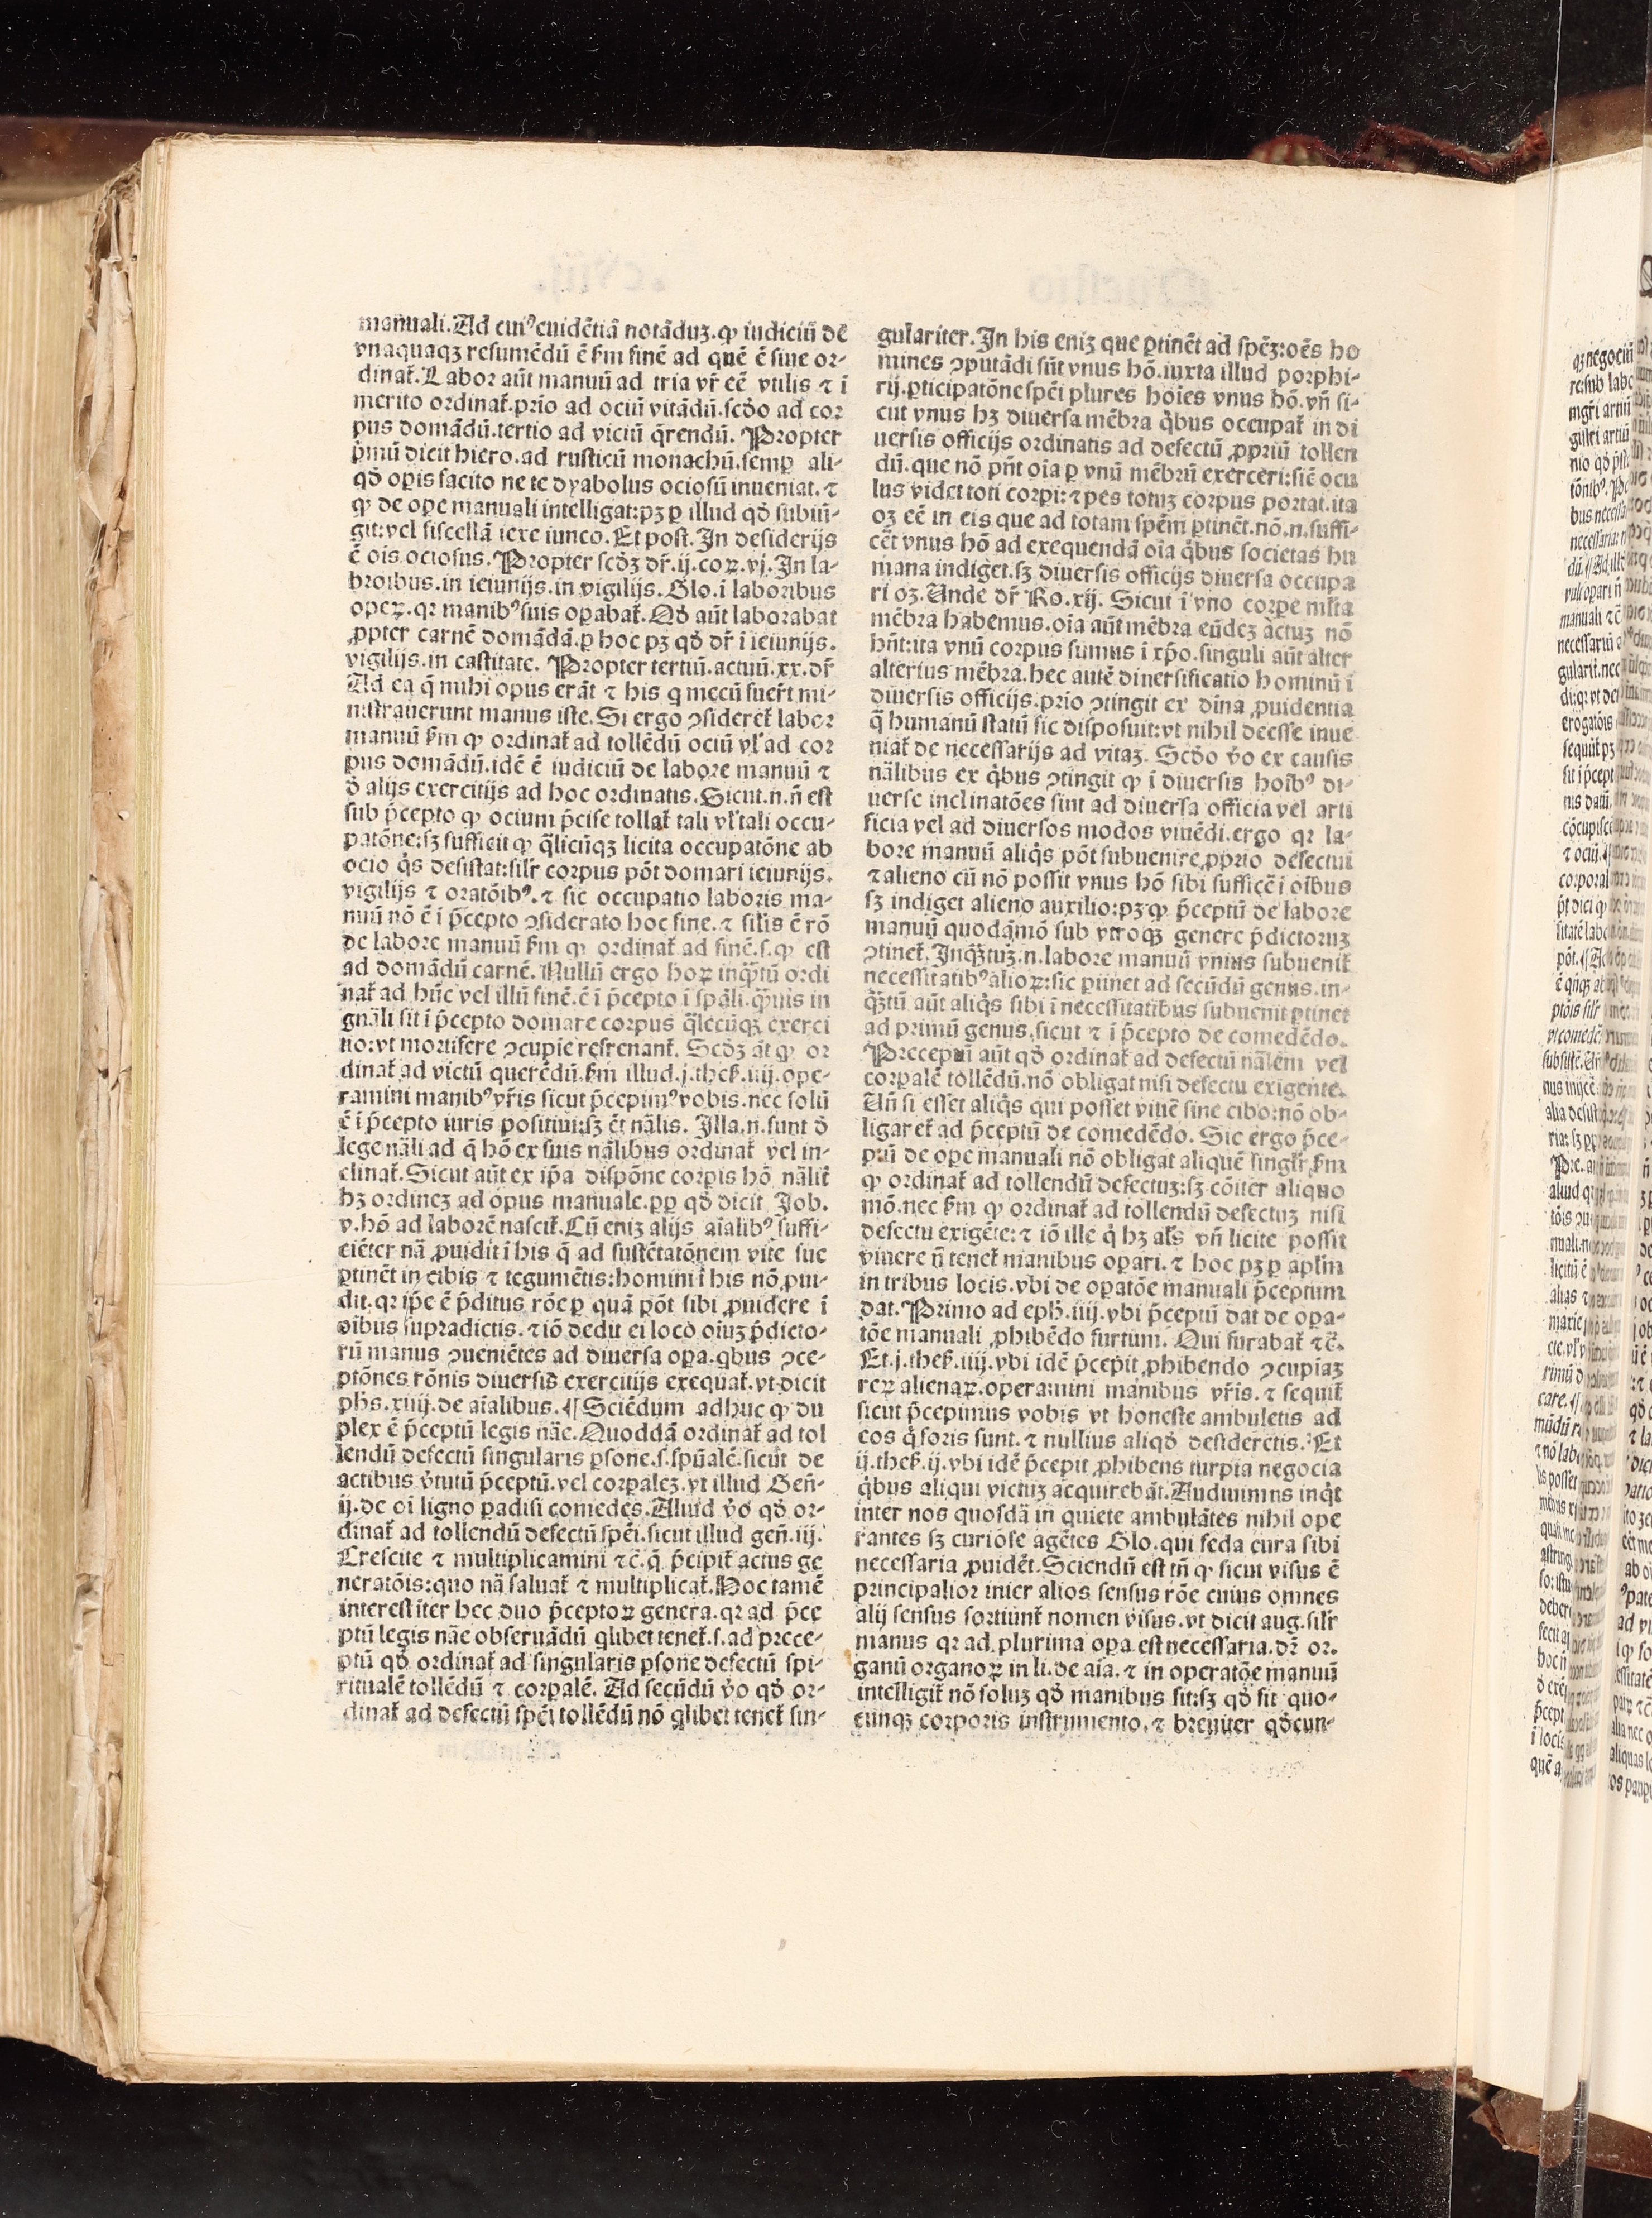 manuali. Ad cuiꝰ euidētiā notāduꝫ. ꝙ iudiciū de
vnaquaqꝫ resumēdū ē ẜm finē ad quē ē siue or-
dinaṫ. Labor aūt manuū ad tria vr̄ eē vtilis ⁊ ī
merito ordinaṫ. prīo ad ociū vitādū. scḋo ad cor
pus domādū. tertio ad viciū q̄rendū. Propter
pͥmū dicit hiero. ad rusticū monachū. semꝑ ali-
qḋ oꝑis facito ne te dyabolus ociosū inueniat. ⁊
ꝙ de oꝑe manuali intelligat: pꝫ ꝑ illud qḋ subiū-
git: vel fiscellā texe iunco. Et post. In desiderijs
ē oīs ociosus. Propter scḋꝫ dr̄. ij. coꝝ. vj. In la-
boribus. in ieiunijs. in vigilijs. Glo. i laboribus
oꝑeꝝ. qꝛ manibꝰ suis oꝑabaṫ. Qḋ aūt laborabat
ꝓpter carnē domādā. ꝑ hoc pꝫ qḋ dr̄ ī ieiunijs.
vigilijs. in castitate. Propter tertiū. actuū. xx. dr̄
Ad ea q̄ mihi opus erāt ⁊ his q̄ mecū fuer̄t mi-
nistrauerunt manus iste. Si ergo ↄsidereṫ labor
manuū ẜm ꝙ ordinaṫ ad tollēdū ociū vl̓ ad cor
pus domādū. idē ē iudiciū de labore manuū ⁊
ḋ alijs exercitijs ad hoc ordinatis. Sicut. n. n̄ est
sub p̄cepto ꝙ ocium p̄cise tollaṫ tali vl̓ tali occu-
patōne: sꝫ sufficit ꝙ q̄licūqꝫ licita occupatōne ab
ocio q̇s desistat: silr̄ corpus pōt domari ieiunijs.
vigilijs ⁊ oratōibꝰ. ⁊ sic occupatio laboris ma-
nuū nō ē ī p̄cepto ↄsiderato hoc fine. ⁊ silis ē rō
de labore manuū ẜm ꝙ ordinaṫ ad finē. s. ꝙ est
ad domādū carnē. Nullū ergo hoꝝ inq̄tū ordi
naṫ ad hūc vel illū finē. ē ī p̄cepto ī spāli. q̄uis in
gnāli sit ī p̄cepto domare corpus q̄lecūqꝫ exerci
tio: vt mortifere ↄcupie refrenanṫ. Scḋꝫ āt ꝙ or
dinaṫ ad victū querēdū. ẜm illud. j. theẜ. iiij. ope-
ramini manibꝰ vr̄is sicut p̄cepimꝰ vobis. nec solū
ē ī p̄cepto iuris positiui: sꝫ ēt nālis. Illa. n. sunt ḋ
lege nāli ad q̄ hō ex suis nālibus ordinaṫ vel in-
clinaṫ. Sicut aūt ex ip̄a dispōne corꝑis hō nāliṫ
hꝫ ordineꝫ ad opus manuale. ꝓp qḋ dicit Job.
v. hō ad laborē nasciṫ. Cū eniꝫ alijs aīalibꝰ suffi-
ciēter nā ꝓuidit ī his q̄ ad sustētatōnem vite sue
ꝑtinēt in cibis ⁊ tegumētis: homini ī his nō ꝓui-
dit. qꝛ ip̄e ē p̄ditus rōe ꝑ quā pōt sibi ꝓuidere ī
oībus supradictis. ⁊ iō dedit ei loco oīuꝫ p̄dicto-
rū manus ↄueniētes ad diuersa oꝑa. qͥbus ↄce-
ptōnes rōnis diuersis exercitijs exequaṫ. vt dicit
ph̄s. xiiij. de aīalibus. ¶ Sciēdum adhuc ꝙ du
plex ē p̄ceptū legis nāe. Quoddā ordinaṫ ad tol
lendū defectū singularis ꝑsone. s. spūalē. sicut de
actibus v̇tutū p̄ceptū. vel corꝑaleꝫ. vt illud Gen̄.
ij. de oī ligno ꝑadisi comedes. Aliud v̇o qḋ or-
dinaṫ ad tollendū defectū spēi. sicut illud gen̄. iij.
Crescite ⁊ multiplicamini ⁊c̄. q̄ p̄cipiṫ actus ge
neratōis: quo nā saluaṫ ⁊ multiplicaṫ. Hoc tamē
interest iter hec duo p̄ceptoꝝ genera. qꝛ ad p̄ce
ptū legis nāe obseruādū q̇libet teneṫ. s. ad prece-
ptū qḋ ordinaṫ ad singularis ꝑsone defectū spi-
ritualē tollēdū ⁊ corꝑalē. Ad secūdū v̇o qḋ or-
dinaṫ ad defectū spēi tollēdū nō q̇libet teneṫ sin-
gulariter. In his eniꝫ que ꝑtinēt ad spēꝫ: oēs ho
mines ↄputādi sūt vnus hō. iuxta illud porphi-
rij. ꝑticipatōne spēi plures hoīes vnus hō. vn̄ si-
cut vnus hꝫ diuersa mēbra q̇bus occupaṫ in di
uersis officijs ordinatis ad defectū ꝓpriū tollen
dū. que nō pn̄t oīa ꝑ vnū mēbrū exerceri: sic̄ ocu
lus videt toti corpi: ⁊ pes totuꝫ corpus portat. ita
oꝫ eē in eis que ad totam spēm ꝑtinēt. nō. n. suffi-
cēt vnus hō ad exequendā oīa q̇bus societas hu
mana indiget. sꝫ diuersis officijs diuersa occupa
ri oꝫ. Unde dr̄ Ro. xij. Sicut ī vno corꝑe ml̓ta
mēbra habemus. oīa aūt mēbra eūdeꝫ actuꝫ nō
hn̄t: ita vnū corpus sumus ī xp̄o. singuli aūt alter
alterius mēbra. hec autē diuersificatio hominū ī
diuersis officijs. prīo ↄtingit ex dīna ꝓuidentia
q̄ humanū statū sic disposuit: vt nihil deesse inue
niaṫ de necessarijs ad vitaꝫ. Scḋo v̇o ex causis
nālibus ex q̇bus ↄtingit ꝙ ī diuersis hoībꝰ di-
uerse inclinatōes sint ad diuersa officia vel arti
ficia vel ad diuersos modos viuēdi. ergo qꝛ la-
bore manuū aliq̇s pōt subuenire ꝓprio defectui
⁊ alieno cū nō possit vnus hō sibi sufficē ī oībus
sꝫ indiget alieno auxilio: pꝫ ꝙ p̄ceptū de labore
manuū quodāmō sub vtroqꝫ genere p̄dictoruꝫ
ↄtineṫ. Inq̄tuꝫ. n. labore manuū vnius subueniṫ
necessitatibꝰ alioꝝ: sic ꝑtinet ad secūdū genus. in-
q̄tū aūt aliq̇s sibi ī necessitatibus subuenit ꝑtinet
ad primū genus. sicut ⁊ ī p̄cepto de comedēdo.
Preceptū aūt qḋ ordinaṫ ad defectū nālem vel
corꝑalē tollēdū. nō obligat nisi defectu exigente.
Un̄ si esset aliq̇s qui posset viuē sine cibo: nō ob-
ligareṫ ad p̄ceptū de comedēdo. Sic ergo p̄ce-
ptū de oꝑe manuali nō obligat aliquē singlr̄. ẜm
ꝙ ordinaṫ ad tollendū defectuꝫ: sꝫ cōiter aliquo
mō. nec ẜm ꝙ ordinaṫ ad tollendū defectuꝫ nisi
defectu exigēte: ⁊ iō ille q̇ hꝫ al̓s vn̄ licite possit
viuere n̄ teneṫ manibus oꝑari. ⁊ hoc pꝫ ꝑ apl̓m
in tribus locis. vbi de oꝑatōe manuali p̄ceptum
dat. Primo ad eph̄. iiij. vbi p̄ceptū dat de oꝑa-
tōe manuali ꝓhibēdo furtum. Qui furabaṫ ⁊c̄.
Et. j. theẜ. iiij. vbi idē p̄cepit ꝓhibendo ↄcupiaꝫ
reꝝ alienaꝝ. operamini manibus vr̄is. ⁊ sequiṫ
sicut p̄cepimus vobis vt honeste ambuletis ad
eos q̇ foris sunt. ⁊ nullius aliqḋ desideretis. Et
ij. theẜ. ij. vbi idē p̄cepit ꝓhibens turpia negocia
q̇bus aliqui victuꝫ acquirebāt. Audiuimus inq̇t
inter nos quosdā in quiete ambulātes nihil ope
rantes sꝫ curiose agētes Glo. qui feda cura sibi
necessaria ꝓuidēt. Sciendū est tn̄ ꝙ sicut visus ē
principalior inter alios sensus rōe cuius omnes
alij sensus sortiunṫ nomen visus. vt dicit aug. silr̄
manus qꝛ ad plurima oꝑa est necessaria. dr̄ or.
ganū organoꝝ in li. de aīa. ⁊ in operatōe manuū
intelligiṫ nō soluꝫ qḋ manibus sit: sꝫ qḋ sit quo-
cunqꝫ corporis instrumento. ⁊ breuiter qḋcun-